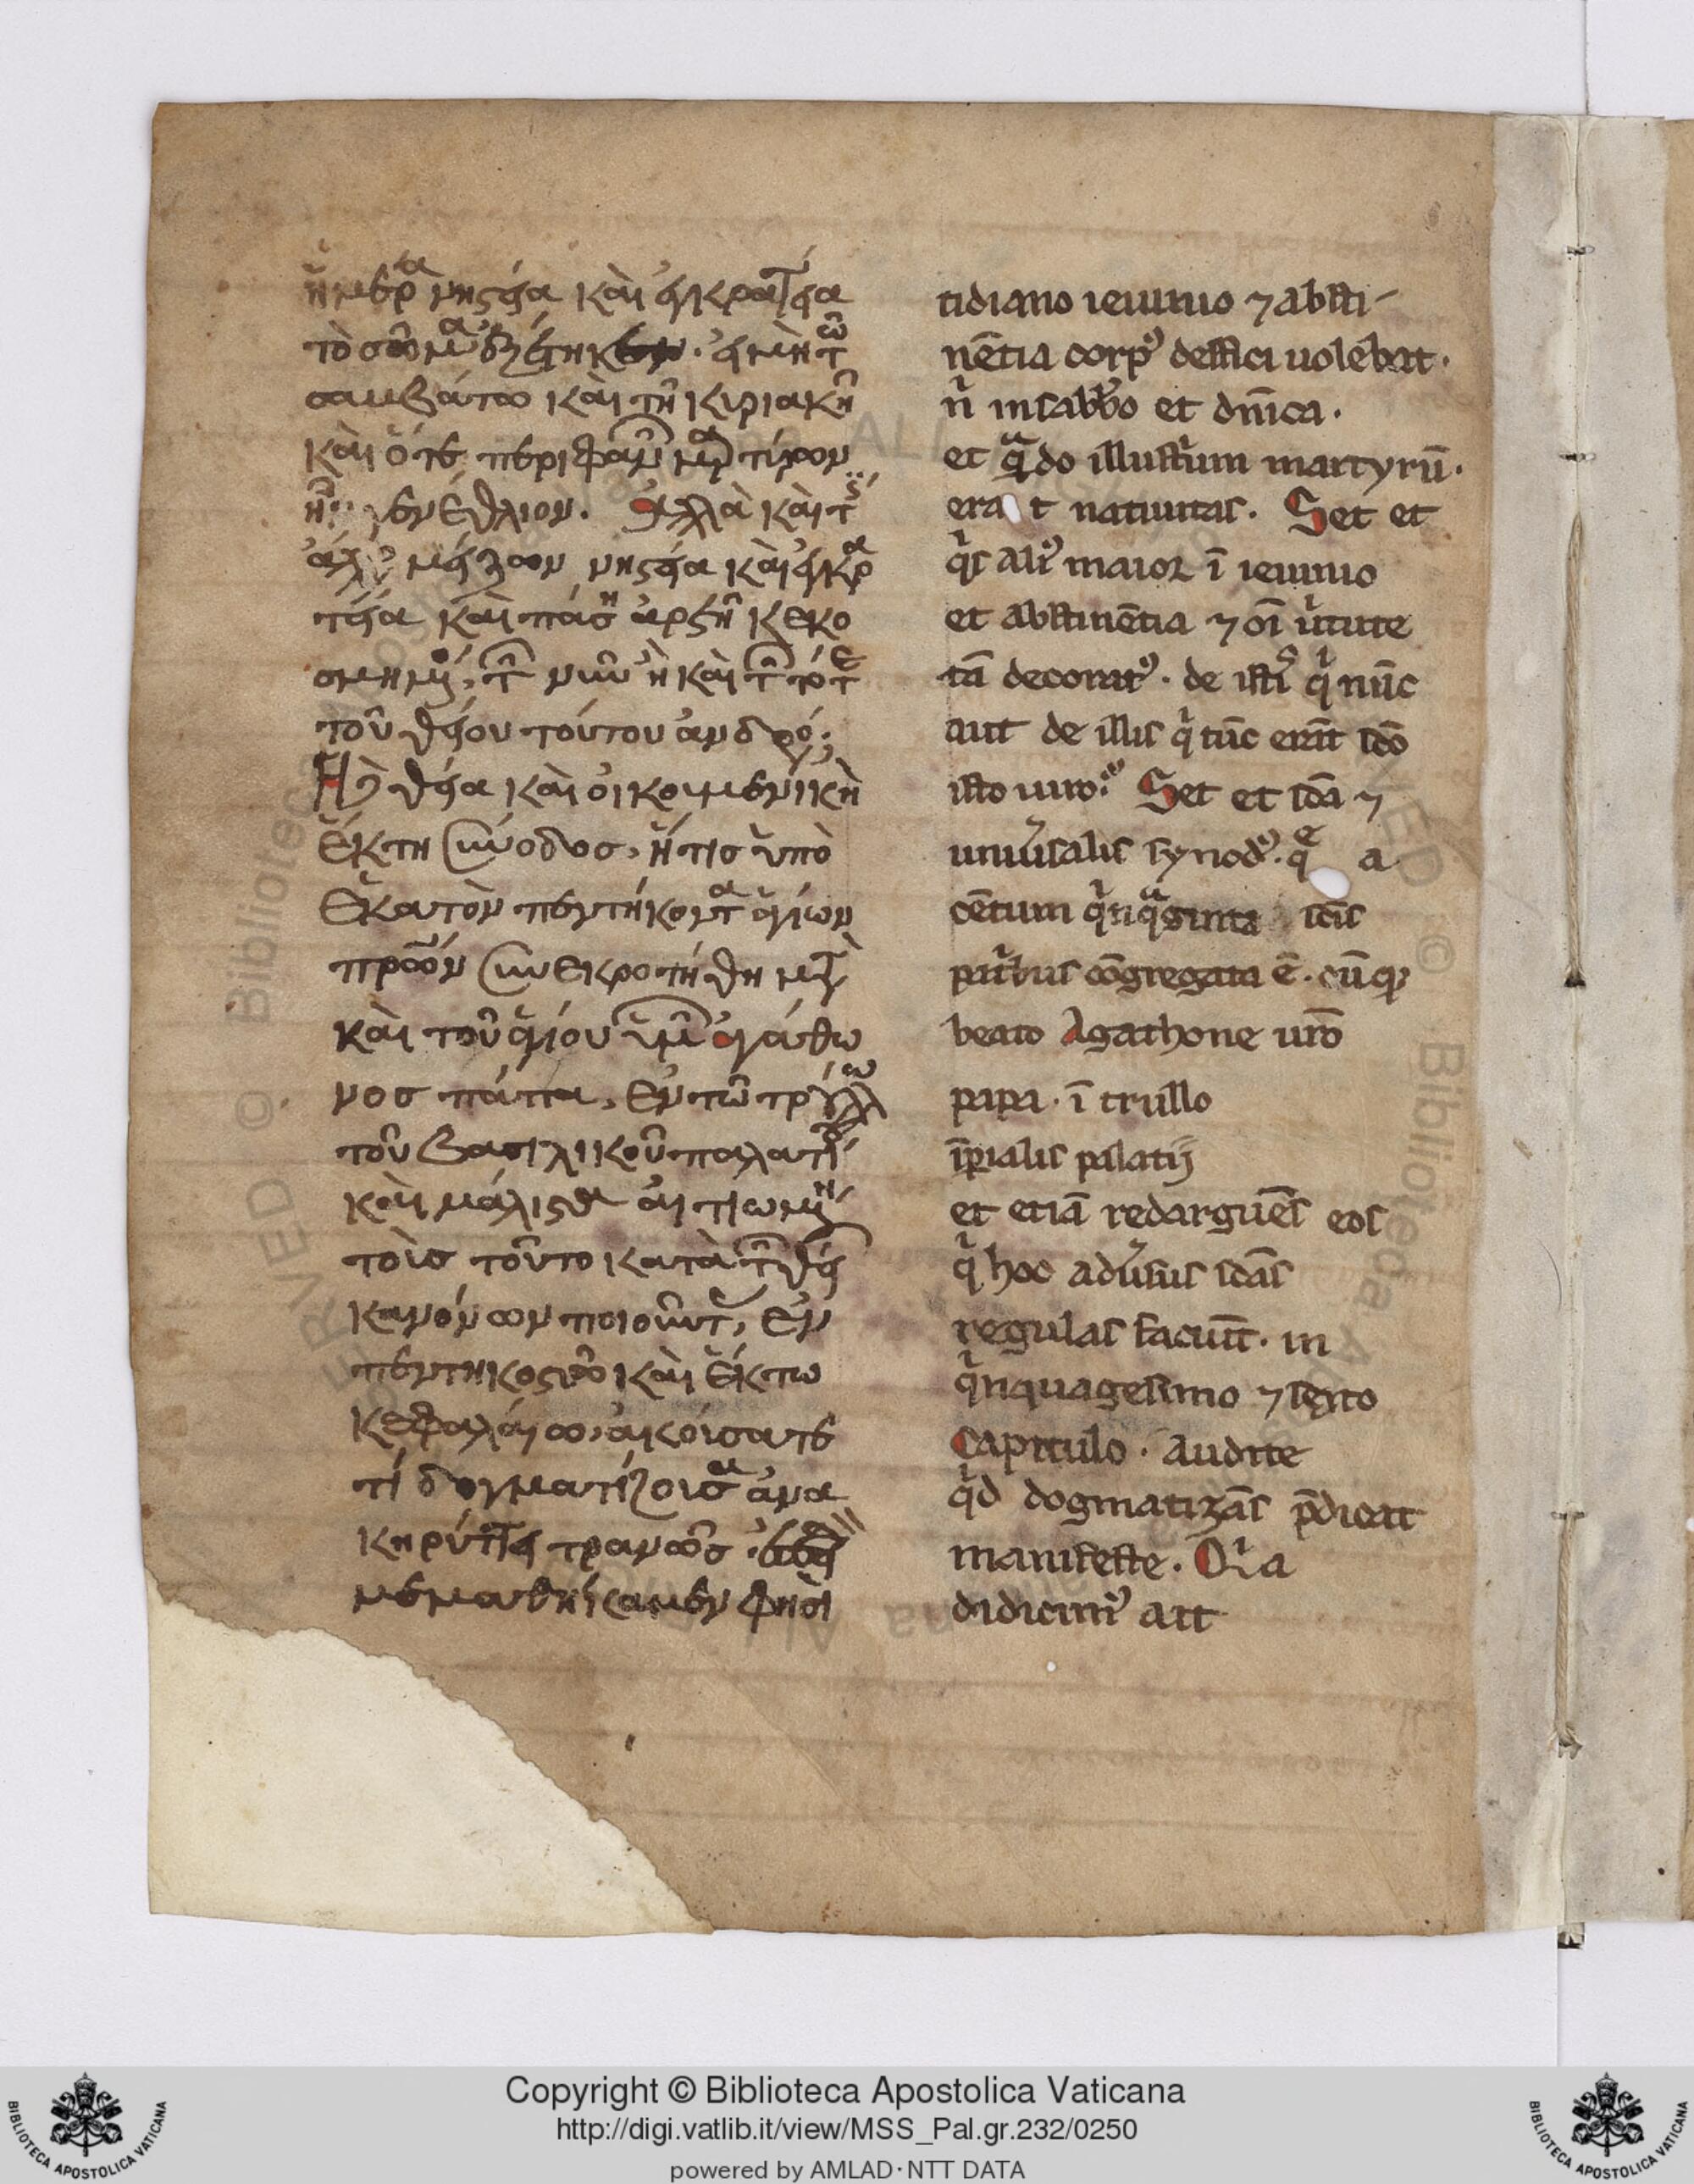 ἡμέρα νηστεία καὶ ἐγκρατεία
τὸ σῶμα
σαμβάτω καὶ τῆ κυριακῆ
καὶ ὅτε περιφαν μαρτύρων
ἦν γενέθλιον. Ἀλλὰ καὶ τίς
ἄλλος μείζων νηστεία καὶ ἐγκρα
τεία καὶ πάση ἀρετῆ κεκο
σμημένος, τῶν νῦν ἢ καὶ τῶν τότε
τοῦ θείου τούτου ἀνδρός.
Ἡ θεία καὶ οἰκουμενικὴ
ἕκτη σύνοδος, ἥτις ὑπὸ
ἑκατὸν πεντήκοντα ἁγίων
πρων συνεκροτήθη μετὰ
καὶ τοῦ ἁγίου ὑμῶν ἀγάθω
νος πάπα, ἐν τῶ τρούλλω
τοῦ βασιλικοῦ παλατίου
καὶ μάλιστα
τοῖς τοῦτο κατὰ τῶν θείων
κανόνων ποιοῦντ, ἐν
πεντηκοστῶ καὶ ἕκτω
κεφαλαίω, ἀκούσατε
τί δογματίζουσα ἀνα
κηρύττει τρανῶς.
μεμαθήκαμεν φησὶ
tidiano ieiunio ⁊ absti-
nētia corpꝰ deffici uolebat.
ñ in sabb̄o et dn̄ica.
et qͣdo illustrium martyrū.
erat natiuitas. Set et
qͥs aliꝰ maior ī ieiunio
et abstinētia ⁊ oī uͥtute
tā decoratꝰ. de istis qͥ nūc
aut de illis qͥ tūc erāt scō
isto uiro. Set et scā ⁊
uniuͥsalis synodꝰ. qͤ a
cētum qͥnqͣginta scīs
patͥbus cōgregata ē. cūqꝫ
beato Agathone uro
papa. ī trullo
īp̄ialis palatij
et etiā redarguēs eos
qͥ hoc aduͥsus scās
regulas faciūt. in
qͥnquagesimo ⁊ sexto
Capitulo. audite
qͥd dogmatizās p̄dicat
manifeste. Qͥa
didicimꝰ ait
Copyright © Biblioteca Apostolica Vaticana
http://digi.vatlib.it/view/MSS_Pal.gr.232/0250
powered by AMLAD·NTT DATA
BIBLIOTECA APOSTOLICA VATICANA
BIBLIOTECA APOSTOLICA VATICANA